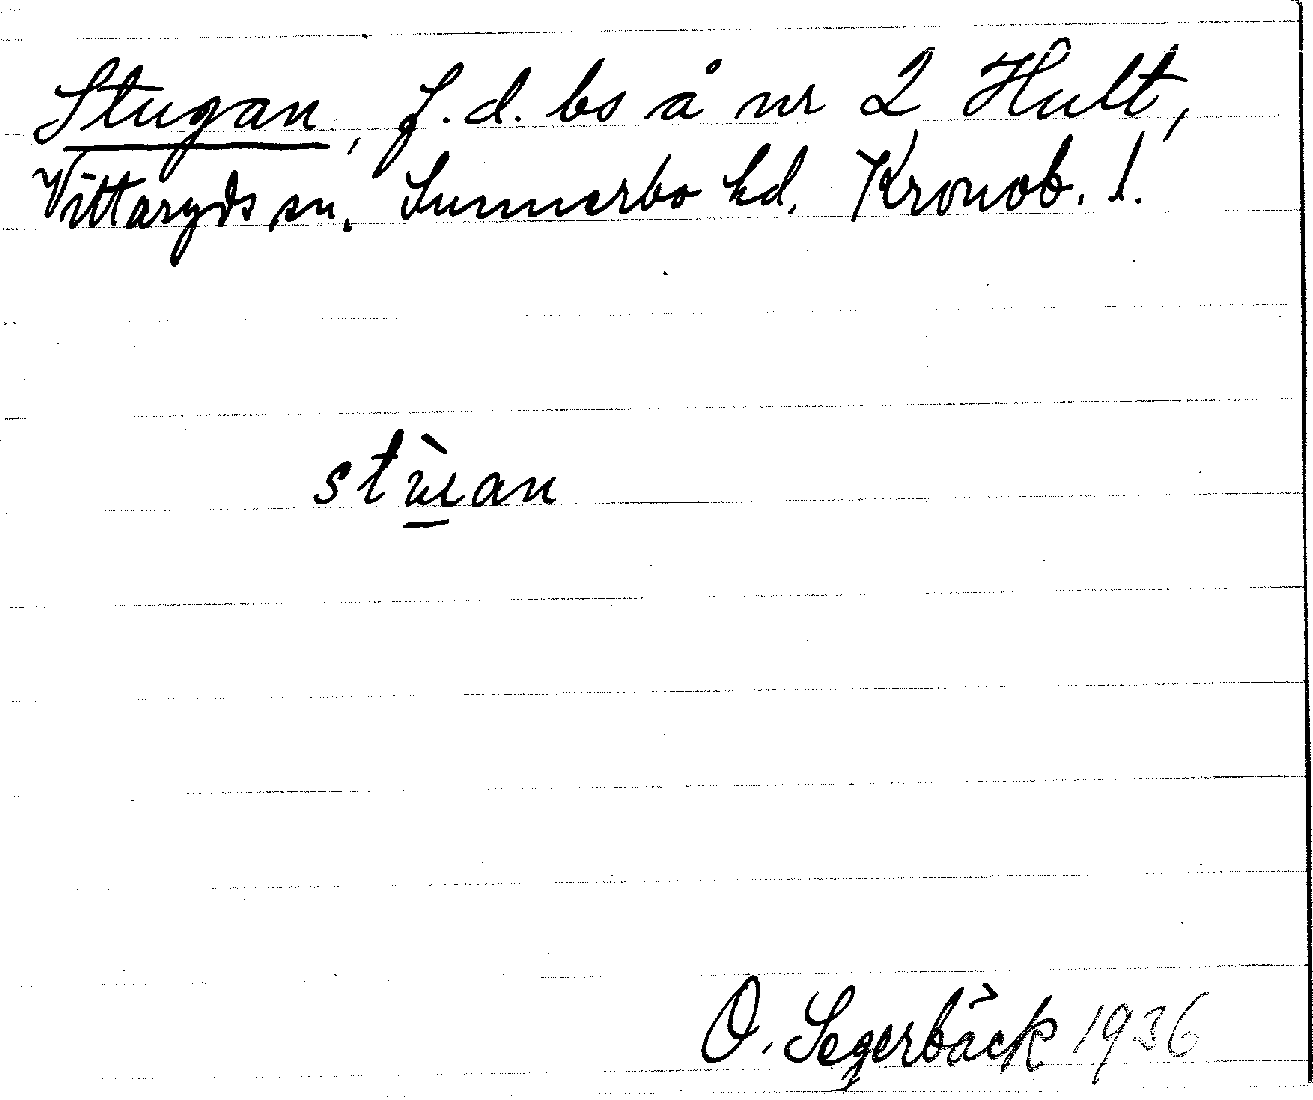 Stugan, f. d. bs å nr 2 Hult,
Vittaryds sn. Sunnerbo hd. Kronob. l.
stùan
O. Segerbäck 1936